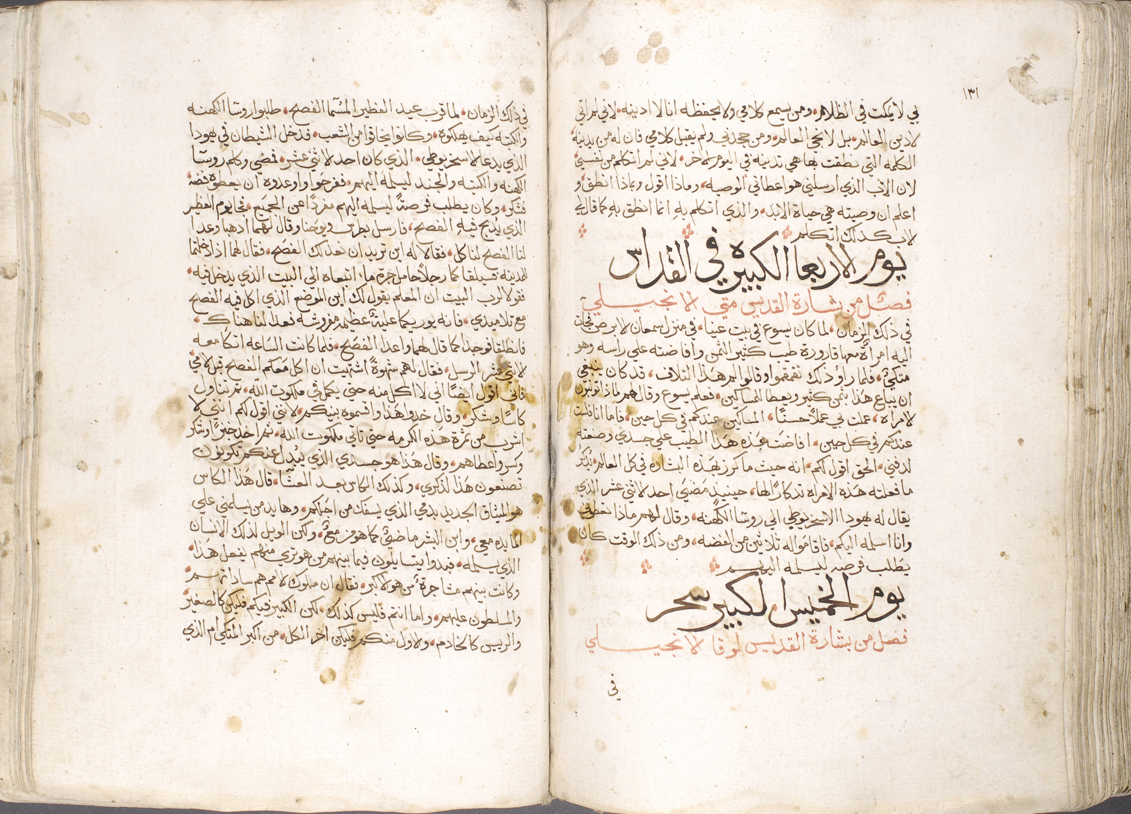 ١٣١
بي لا يمكث في الظلام ومن سمع كلامي ولا يحفظه انا لا ادينه لاني لم اتي
لادين العالم بل لاحيي العالم ومن جحدني ولم يقبل كلامي فان له من يدينه
الكلمه التي نطقت بها هي تدينه في اليوم الاخر لاني لم اتكلم من نفسي
لان الاب الذي ارسلني هو اعطاني الوصيه وماذا اقول وبماذا انطق و
اعلم ان وصيته هي حياة الابد والذي اتكلم به انما انطق به كما قال لي
الاب كذلك اتكلم
يوم الاربعا الكبيره في القداس
فصل من بشارة القديس متى الانجيلي
في ذلك الزمان لما كان يسوع في بيت عنيا في منزل سمعان الابرص فجات
اليه امراة معها قارورة طيب كثير الثمن وافاضته على راسه وهو
متكي فلما راو ذلك تقمقموا وقالوا لم هذا التلاف قد كان ينبغي
ان يباع هذا بثمن كثير ويعطا للمساكين فعلم يسوع وقال لهم ماذا تريدون
لامراة عملت بي عملاً حسنًا المساكين عندكم في كل حين فاما انا فلست
عندكم في كل حين افاضت هذه هذا الطيب على جسدي وصنعته
لدفني الحق اقول لكم انه حيث ما كرز بهذه البشاره في كل العالم يذكر
ما فعلته هذه الامراه تذكارًا لها حينيذ مضى احد الاثني عشر الذي
يقال له يهودا الاسخريوطي الى روسا الكهنه وقال لهم ماذا تعطوني
وانا اسلمه اليكم فاقاموا له ثلاثين من الفضه ومن ذلك الوقت كان
يطلب فرصه ليسلمه اليهم
يوم الخميس الكبير سحر
فصل من بشارة القديس لوقا الانجيلي
في
في ذلك الزمان لما قرب عيد الفطير المسما الفصح طلبوا روسا الكهنه
والكتبه كيف يهلكوه وكانوا يخافوا من الشعب فدخل الشيطان في يهودا
الذي يدعا الاسخريوطي الذي كان احد الاثني عشر فمضى وكلم روسا
الكهنه والكتبه والجند ليسلمه اليهم ففرحوا واوعدوه ان يعطوه فضه
فشكر وكان يطلب فرصةً ليسلمه اليهم مفردًا من الجميع فجا يوم الفطير
الذي يذبح فيه الفصح فارسل بطرس ويوحنا وقال لهما اذهبا وعدا
لنا الفصح لناكل فقالا له اين تريد ان نعد لك الفصح فقال لهما اذا دخلتما
المدينه فيلقاكما رجلاً حامل جرة ما اتبعاه الى البيت الذي يدخل فيه
فقولا لرب البيت ان المعلم يقول لك اين الموضع الذي اكل فيه الفصح
مع تلاميذي فانه يوريكما علية عظيمه مفروشه فعدا لنا هناك
فانطلقا فوجدا كما قال لهما واعدا الفصح فلما كانت الساعه اتكا معه
الاثني عشر الرسل فقال لهم شهوةً اشتهيت ان اكل معكم الفصح قبل الامي
فاني اقول ايضًا اني لا اكل منه حتى يكمل في ملكوت الله ثم تناول
كاسًا وشكر وقال خذوا هذا واقسموه بينكم لاني اقول لكم انني لا
اشرب من ثمرة هذه الكرمه حتى تاتي ملكوت الله ثم اخذ خبزًا وشكر
وكسر واعطاهم وقال هذا هو جسدي الذي يبذل عنكم تكونون
تصنعون هذا لذكري وكذلك الكاس بعد العشا قال هذا الكاس
هو الميثاق الجديد بدمي الذي يسفك من اجلكم وها يد من يسلمني على
المايده معي وابن البشر ماضي كما هو مزمع ولكن الويل لذلك الانسان
الذي يسلمه فبدوا يتسايلون فيما بينهم من هو يري منهم يفعل هذا
وكانت بينهم مشاجرة من هو الاكبر فقال ان ملوك الامم هم ساداتهم
والمسلطون عليهم واما انتم فليس كذلك لكن الكبير فيكم فليكن كالصغير
والريس كالخادم والاول منكم فليكن اخر الكل من اكبر المتكي ام الذي